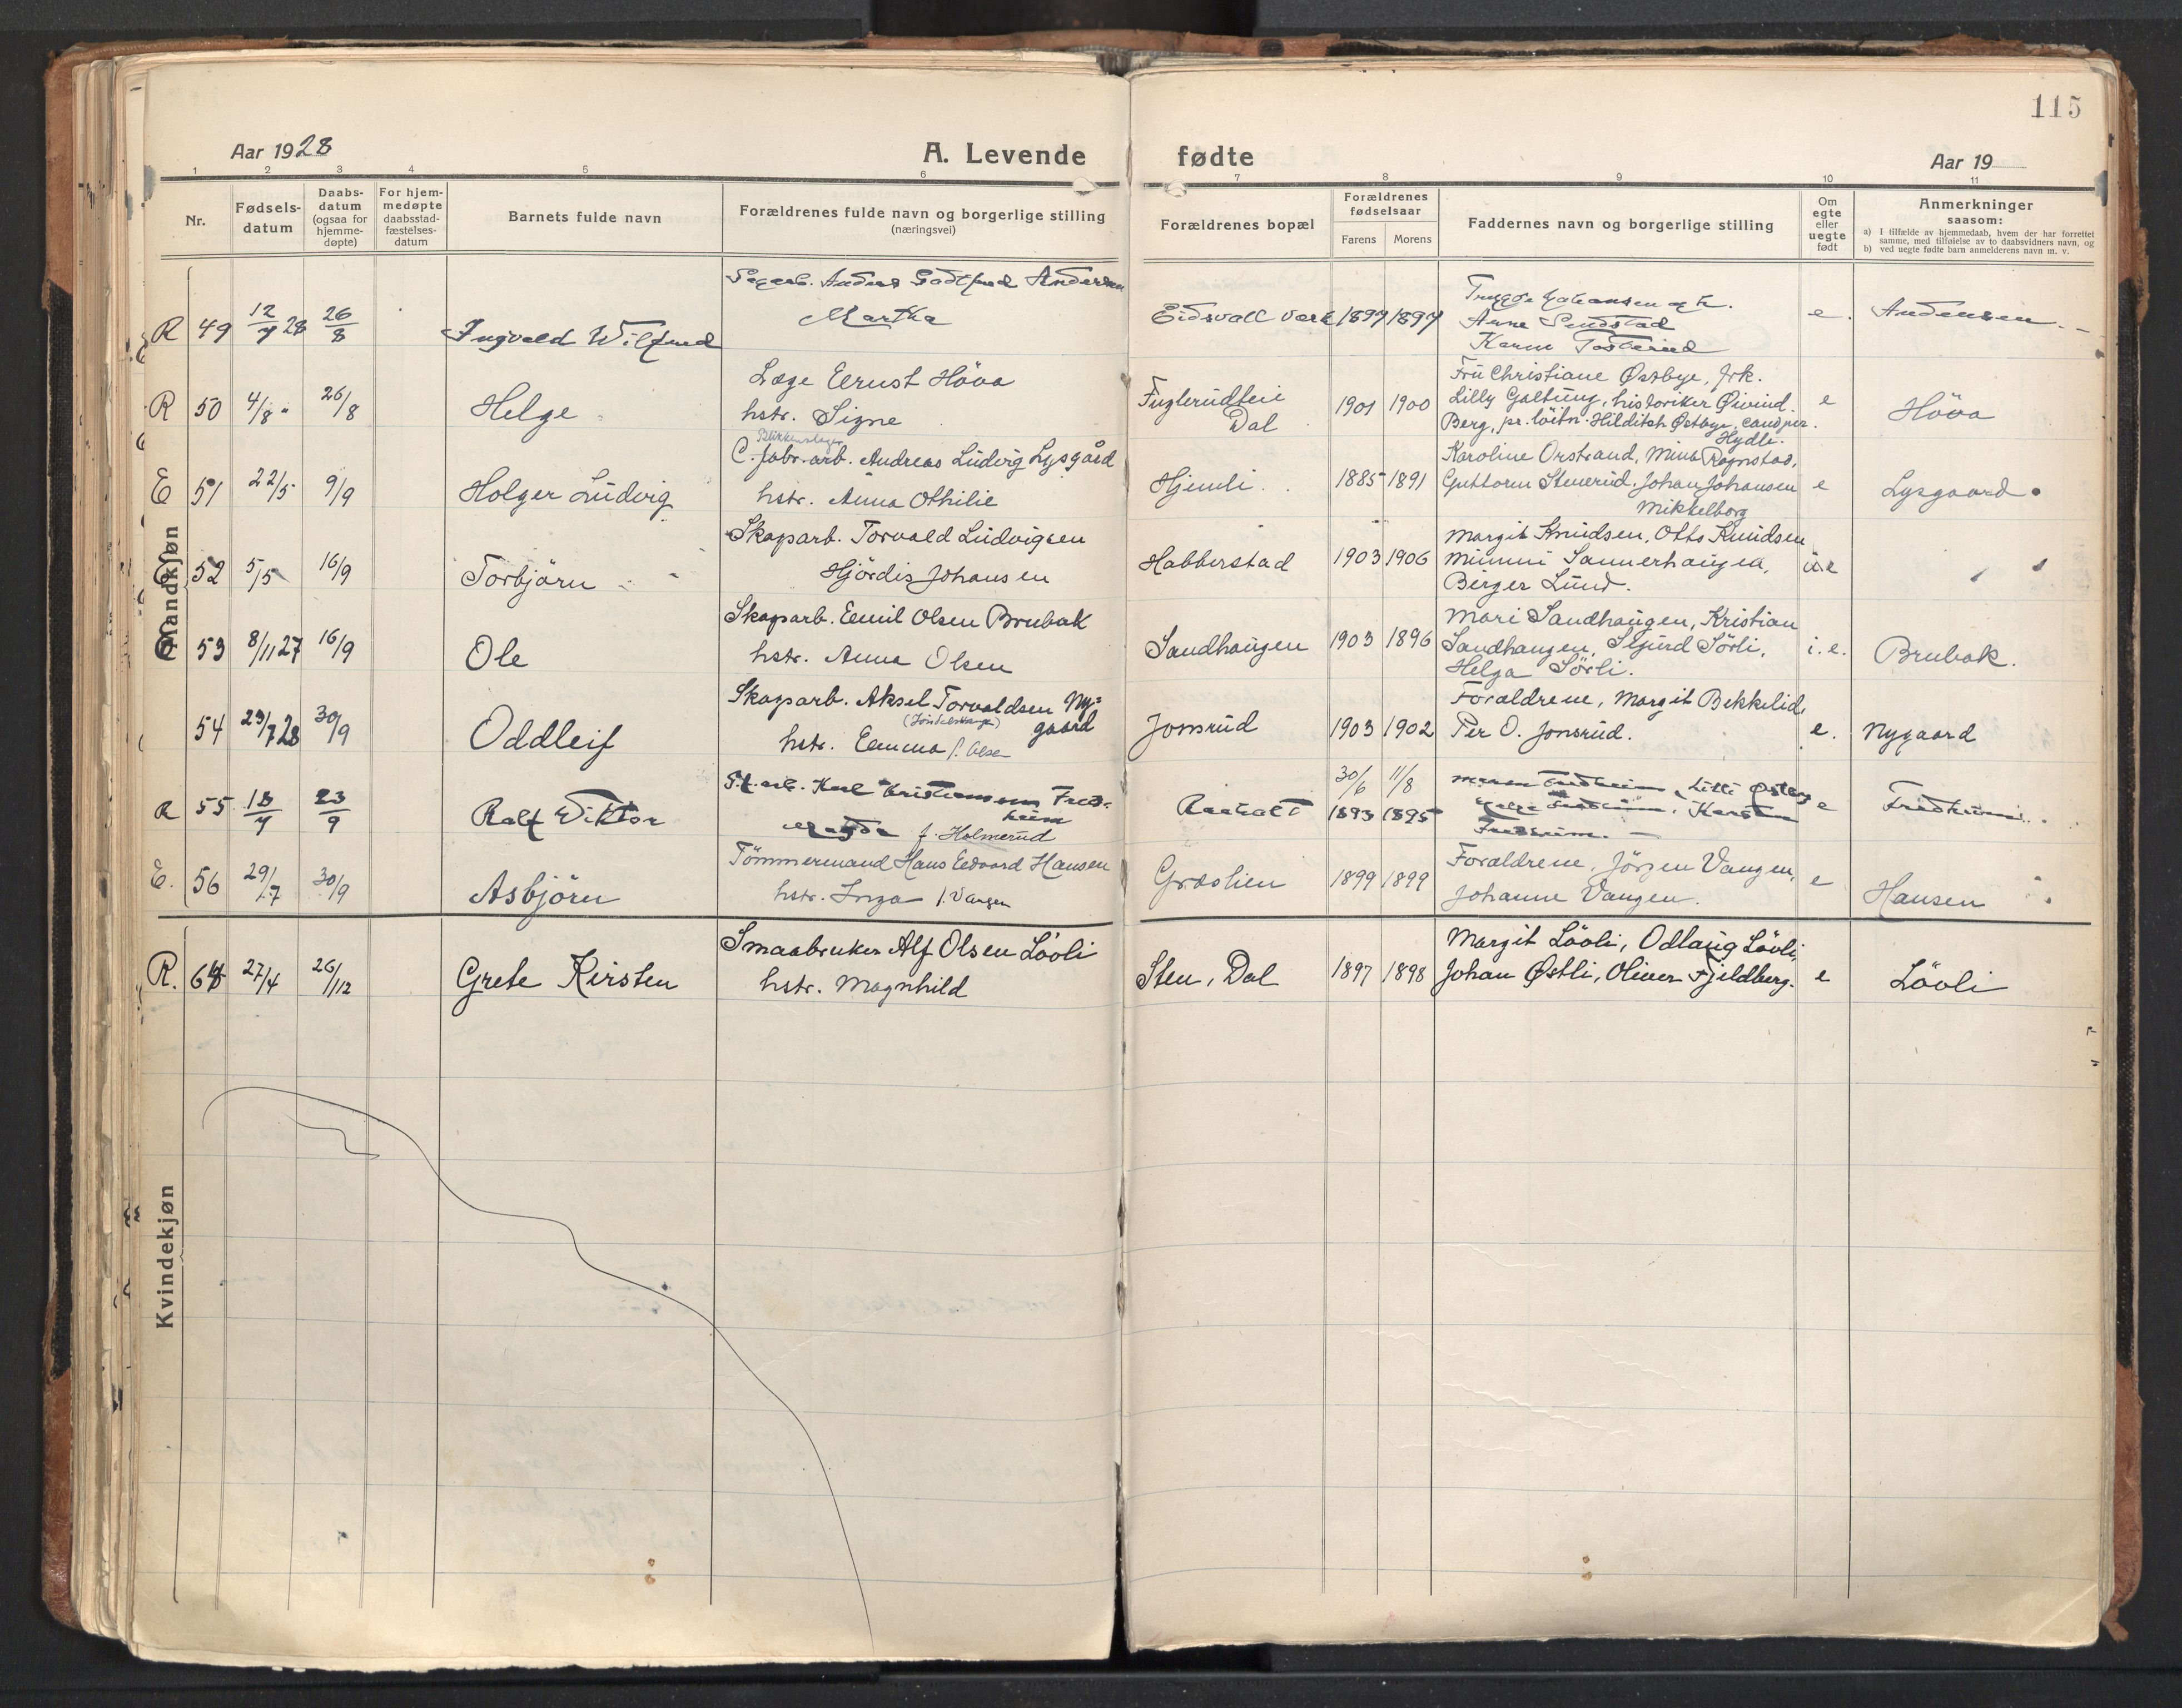 115
Aar 1928
A. Levende fødte
Aar 19
1 2 3 4 5 6 7 8 9 10 11
Nr.
Fødsels-
datum
Daabs-
datum
(ogsaa for
hjemme-
døpte)
For hjem-
medøpte
daabsstad-
fæstelses-
datum
Barnets fulde navn
Forældrenes fulde navn og borgerlige stilling
(næringsvei)
Forældrenes bopæl
Forældrenes
fødselsaar
Farens Morens
Faddernes navn og borgerlige stilling
Om
egte
eller
uegte
født
Anmerkninger
saasom:
a) I tilfælde av hjemmedaab, hvem der har forrettet
samme, med tilføielse av to daabsvidners navn, og
b) ved uegte fødte barn anmelderens navn m. v.
Mandkjøn
R 49 12/7 28 26/8 Ingvald Wilfred
Anders Godtfred Andersen
Martha
Eidsvall Værk 1899 1897
Trygve Johansen og h.
Arne Sendstad
Karen
e. Andersen.
R 50 4/8 " 26/8 Helge
Læge Ernst Höva
hstr. Signe
Fuglerudleie
Dal
1901 1900
Fru Christiane Østbye, frk.
Lilly Galtung, historiker Øivind
Berg, pr. löitn. Hilditch Østbye, cand per.
Hydle.
e Höva
E 51 22/5 9/9 Holger Ludvig
Blikkenslager
C. fabr. arb. Andreas Ludvig Lysgård
hstr. Anna Othilie
Hjemli 1885 1891
Karoline Orstrand, Mina Rognstad,
Guttorm Stenerud, Johan Johansen
Mikkelborg
e Lysgaard
E 52 5/5 16/9 Torbjörn
Skogsarb. Torvald Ludvigsen
Hjördis Johansen
Habberstad 1903 1906
Margit Knudsen, Otto Knudsen
Mimmi Sannerhaugen,
Birger Lund.
u e
E 53 8/11 27 16/9 Ole
Skogsarb. Emil Olsen Brubak
hstr. Anna Olsen
Sandhaugen 1903 1896
Mari Sandhaugen, Kristian
Sandhaugen, Sigurd Sörli,
Helga Sörli.
i. e. Brubak.
54 29/7 28 30/9 Oddleif
Skogsarb. Aksel Torvaldsen Ny=
gaard
hstr. Emma f. Olsen
Jonsrud 1903 1902
Foraldrene, Margit Bekkelid,
Per O. Jonsrud.
e. Nygaard
R 55 18/7 23/9 Ralf Viktor
Karl Kristiansen Fred-
heim
Magda f. Holmerud
Raaholt
30/6 11/8
1893 1895
Maren Fredheim, Lilli Østby
Helge Fredheim, Karsten
Fredheim.
e Fredheim.
E. 56 29/7 30/9 Asbjörn
Tömmermand Hans Edvard Hansen
hstr. Inga f. Vangen
Græslien 1899 1899
Foraldrene, Jörgen Vangen,
Johanne Vangen.
e Hansen
Kvindekjøn
R. 64 27/4 26/12 Grete Kirsten
Smaabruker Alf Olsen Lövli
hstr. Magnhild
Sten, Dal 1897 1898
Margit Lövli, Odlaug Lövli,
Johan Østli, Oliver Fjeldberg.
e Lövli